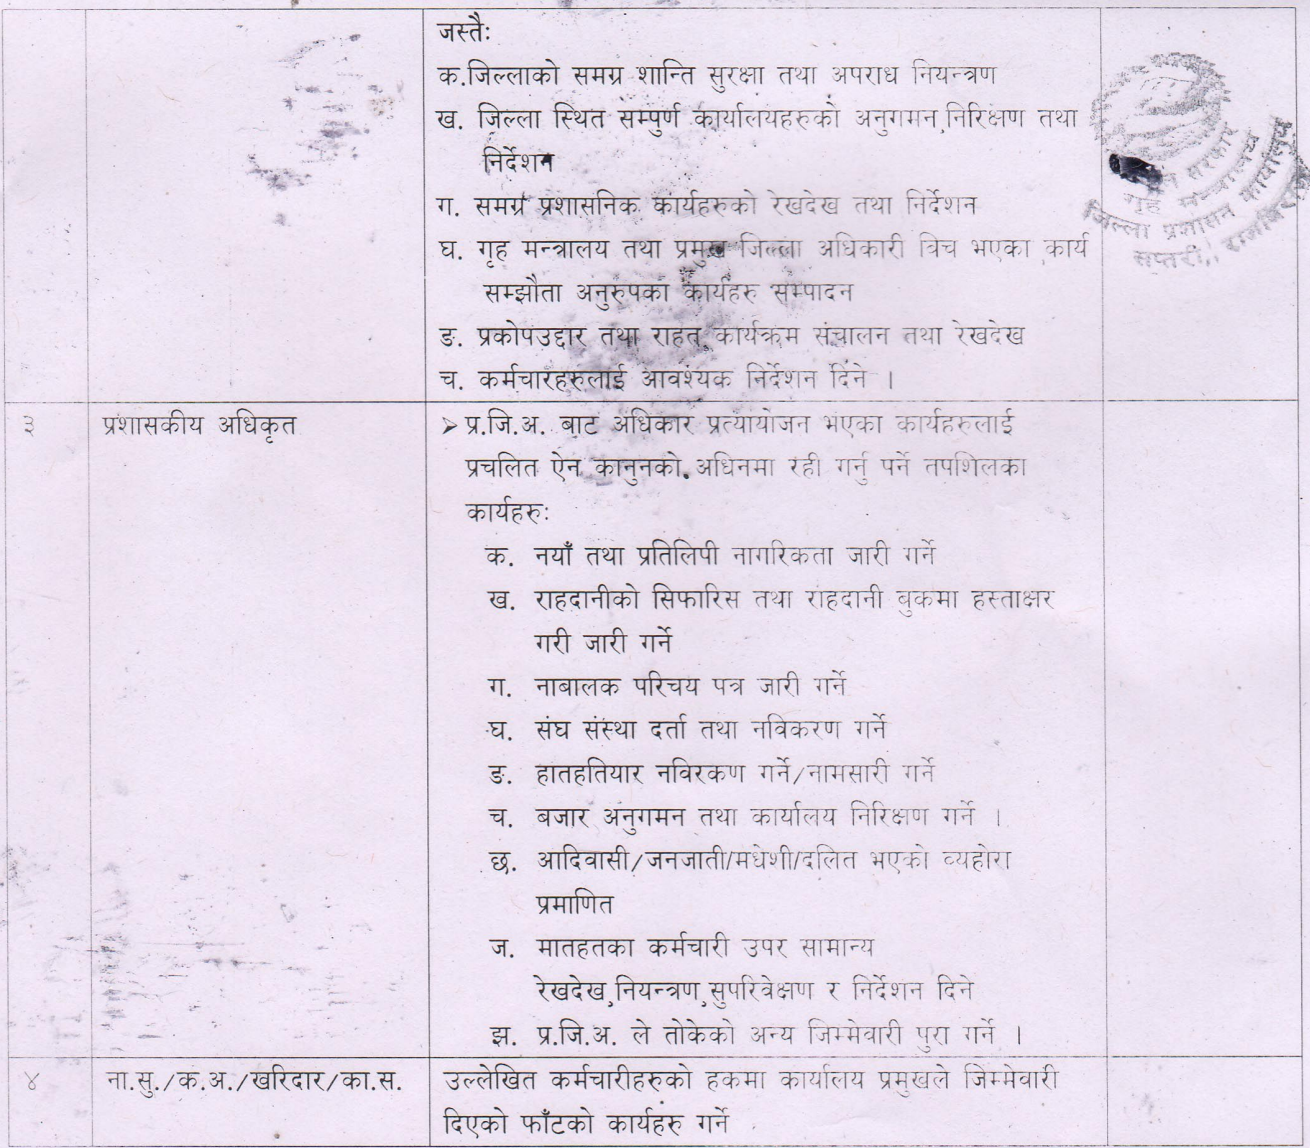 जस्तैः
क.जिल्लाको समग्र शान्ति सुरक्षा तथा अपराध नियन्त्रण
ख. जिल्ला स्थित सम्पुर्ण कार्यालयहरुको अनुगमन,निरिक्षण तथा
निर्देशन
ग. समग्र प्रशासनिक कार्यहरुको रेखदेख तथा निर्देशन
घ. गृह मन्त्रालय तथा प्रमुख जिल्ला अधिकारी विच भएका कार्य
सम्झौता अनुरुपका कार्यहरु सम्पादन
ङ. प्रकोपउद्दार तथा राहत कार्यक्रम संचालन तथा रेखदेख
च. कर्मचारहरुलाई आवश्यक निर्देशन दिने ।
गृह मन्त्रालय
जिल्ला प्रशासन कार्यालय
सप्तरी,
३ प्रशासकीय अधिकृत
➢ प्र.जि.अ. बाट अधिकार प्रत्यायोजन भएका कार्यहरुलाई
प्रचलित ऐन कानुनको अधिनमा रही गर्नु पर्ने तपशिलका
कार्यहरुः
क. नयाँ तथा प्रतिलिपी नागरिकता जारी गर्ने
ख. राहदानीको सिफारिस तथा राहदानी बुकमा हस्ताक्षर
गरी जारी गर्ने
ग. नाबालक परिचय पत्र जारी गर्ने
घ. संघ संस्था दर्ता तथा नविकरण गर्ने
ङ. हातहतियार नविरकण गर्ने/नामसारी गर्ने
च. बजार अनुगमन तथा कार्यालय निरिक्षण गर्ने ।
छ. आदिवासी/जनजाती/मधेशी/दलित भएको व्यहोरा
प्रमाणित
ज. मातहतका कर्मचारी उपर सामान्य
रेखदेख,नियन्त्रण,सुपरिवेक्षण र निर्देशन दिने
झ. प्र.जि.अ. ले तोकेको अन्य जिम्मेवारी पुरा गर्ने ।
४ ना.सु./क.अ./खरिदार/का.स.
उल्लेखित कर्मचारीहरुको हकमा कार्यालय प्रमुखले जिम्मेवारी
दिएको फाँटको कार्यहरु गर्ने